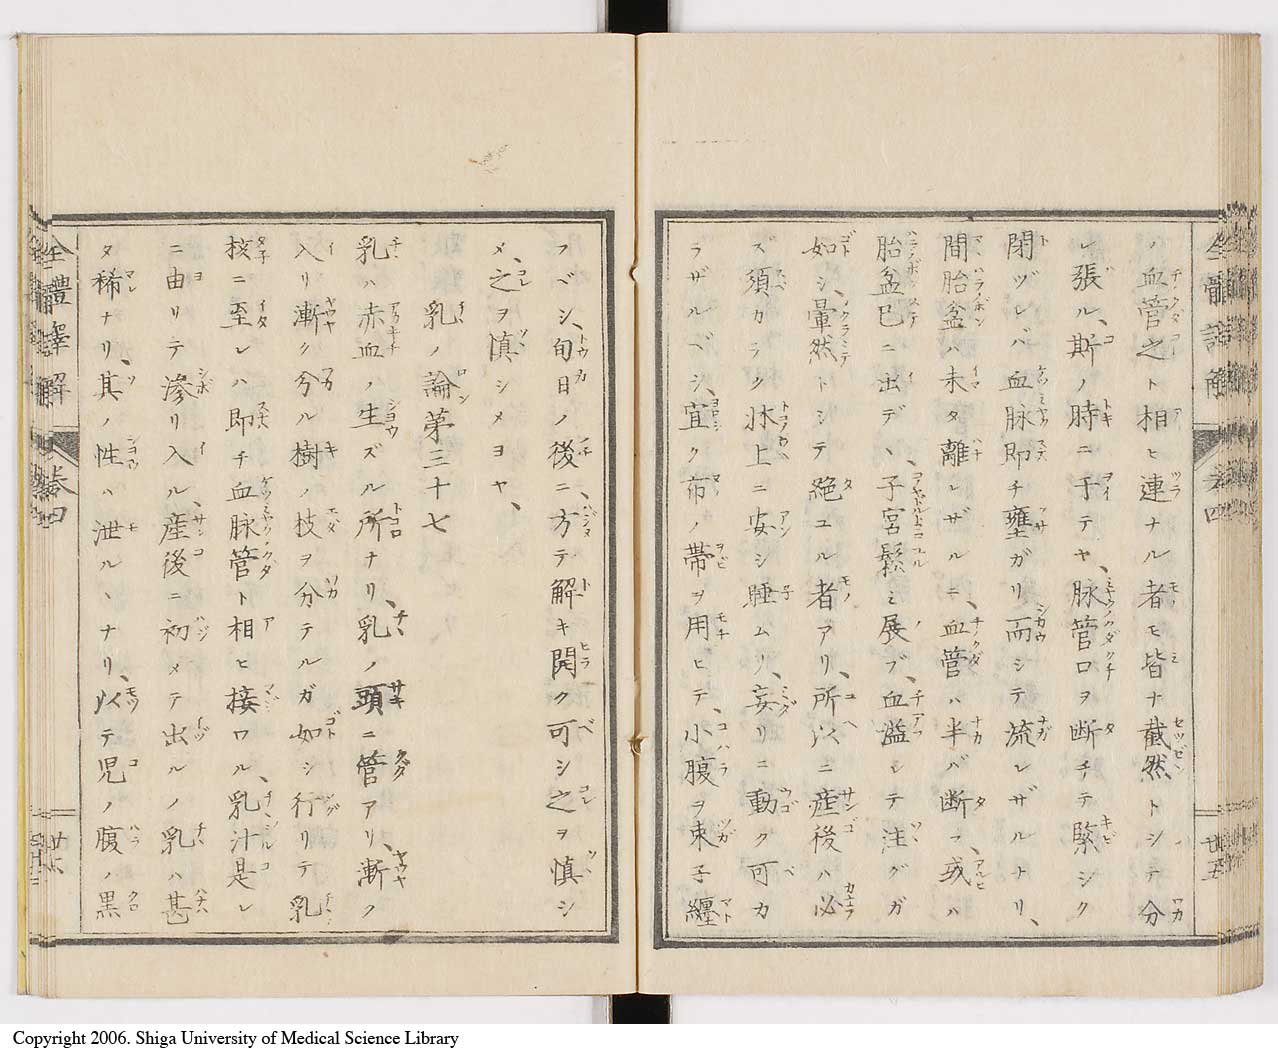 ノ血管之ト相ヒ連ナル者モ皆ナ截然トシテ分
レ張ル、斯ノ時ニ于テヤ、脉管口ヲ断チテ緊シク
閉ヅレバ血脉即チ壅ガリ而シテ流レザルトリ、
間胎盆ハ未タ離レザルニ、血管ハ半バ断ラ、或ハ
胎盆已ニ出デヽ、子宮鬆ミ展ブ、血溢レテ注グガ
如シ、暈然トシテ絶ユル者アリ、所以ニ産後ハ必
ズ須カラク牀上ニ安シ睡ムリ、妄リニ動ク可カ
ラザルベシ、宜ク布ノ帯ヲ用ヒテ小腹ヲ束子纏
フベシ、旬日ノ後ニ方テ解キ開ク可シ之ヲ慎シ
メ、之ヲ慎シメヨヤ、
乳ノ論第三十七
乳ハ赤血ノ生ズル所ナリ、乳ノ頭ニ管アリ、漸ク
入リ漸ク分ル樹ノ枝ヲ分テルガ如シ行リテ乳
核ニ至レハ即チ血脉管ト相ヒ接ワル、乳汁是レ
ニ由リテ滲リ入ル、産後ニ初メテ出ルノ乳ハ甚
タ稀ナリ、其ノ性ハ泄ルヽナリ、以テ児ノ腹ノ黒
全體譯解
巻四
廿六
廿五
Copyright 2006. Shiga University of Medical Science Library